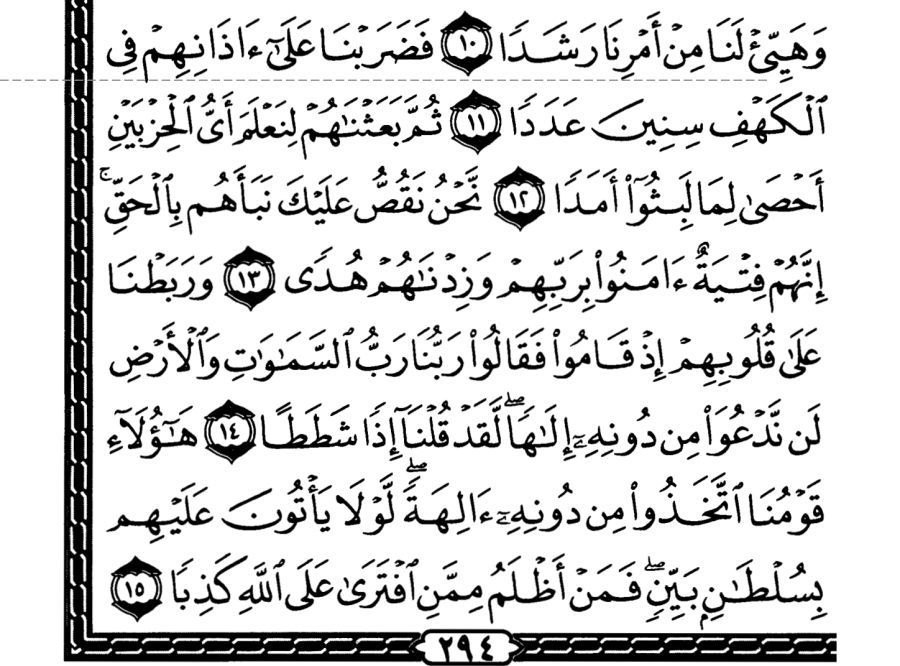 وَهَيِّئْ لَنَا مِنْ أَمْرِنَا رَشَدًا ١٠ فَضَرَبْنَا عَلَىٰٓ ءَاذَانِهِمْ فِي
ٱلْكَهْفِ سِنِينَ عَدَدًا ١١ ثُمَّ بَعَثْنَٰهُمْ لِنَعْلَمَ أَيُّ ٱلْحِزْبَيْنِ
أَحْصَىٰ لِمَا لَبِثُوٓا۟ أَمَدًا ١٢ نَّحْنُ نَقُصُّ عَلَيْكَ نَبَأَهُم بِٱلْحَقِّ ۚ
إِنَّهُمْ فِتْيَةٌ ءَامَنُوا۟ بِرَبِّهِمْ وَزِدْنَٰهُمْ هُدًى ١٣ وَرَبَطْنَا
عَلَىٰ قُلُوبِهِمْ إِذْ قَامُوا۟ فَقَالُوا۟ رَبُّنَا رَبُّ ٱلسَّمَٰوَٰتِ وَٱلْأَرْضِ
لَن نَّدْعُوَا۟ مِن دُونِهِۦٓ إِلَٰهًا ۖ لَّقَدْ قُلْنَآ إِذًا شَطَطًا ١٤ هَٰٓؤُلَآءِ
قَوْمُنَا ٱتَّخَذُوا۟ مِن دُونِهِۦٓ ءَالِهَةً ۖ لَّوْلَا يَأْتُونَ عَلَيْهِم
بِسُلْطَٰنٍۭ بَيِّنٍ ۖ فَمَنْ أَظْلَمُ مِمَّنِ ٱفْتَرَىٰ عَلَى ٱللَّهِ كَذِبًا ١٥
٢٩٤